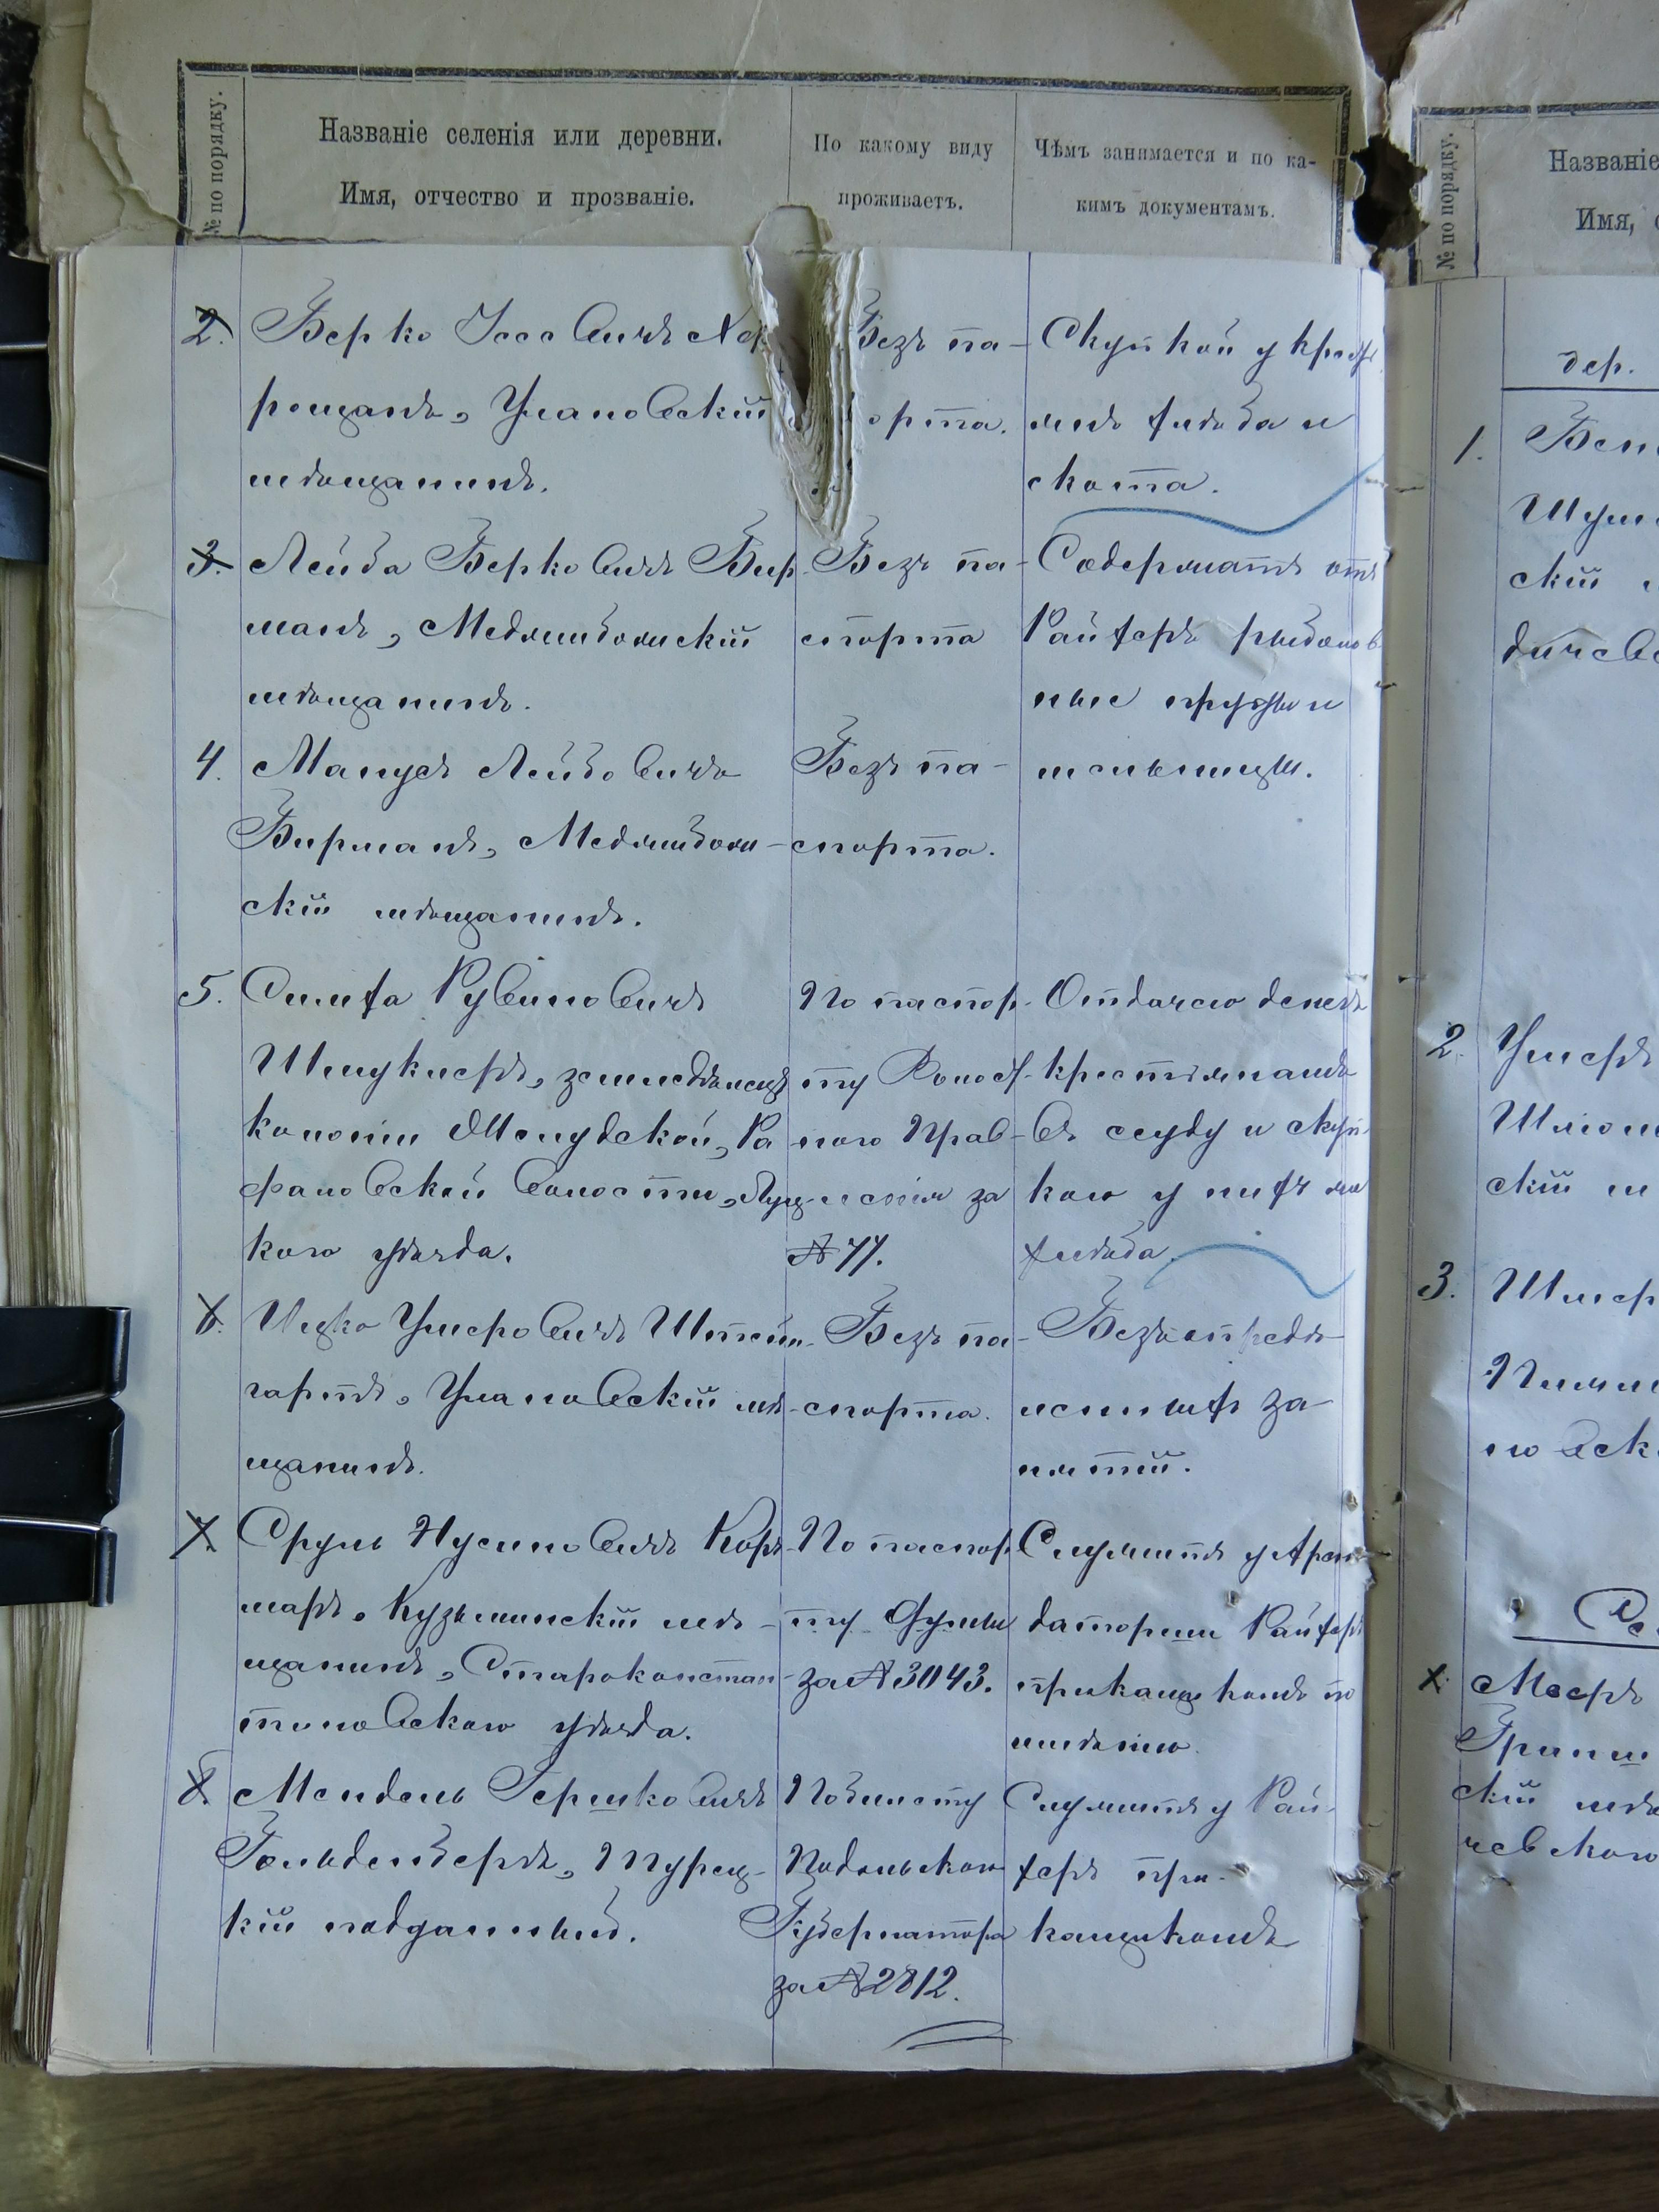 № по порядку.
Названіе селенія или деревни.
Имя, отчество и прозваніе.
По какому виду
проживаетъ.
Чѣмъ занимается и по ка-
кимъ документамъ.
2.
Берко Іосовичъ
рощанъ, Улановскій
мѣщанинъ.
Безъ па-
орта.
Скупкой у
хлѣба и
скота.
3.
Лейба Берковичъ Бир
манъ, Меджибожскій
мѣщанинъ.
Безъ па-
спорта
Содержатъ отъ
Райхеръ рыболов
ные пруды и
мельницы.
4.
Манусъ Лейбовичъ
Бирманъ, Меджибож-
скій мѣщанинъ.
Безъ па-
спорта.
5.
Симха Рувиновичъ
Шмуклеръ, земледѣлецъ
колоніи
фаловской волости,
кого уѣзда.
По паспор-
ту Волост-
ного Прав-
ленія за
№ 77.
Отдачею денегъ
крестьянамъ
въ ссуду и скуп-
кою у нихъ же
хлѣба.
6.
Ицко Умеровичъ Штейн-
гартъ, Улановскій мѣ-
щанинъ.
Безъ па-
спорта.
Безъ опредѣ-
ленныхъ за-
нятій.
7.
Сруль Нусиновичъ Корж-
маръ, Кузьминскій мѣ-
щанинъ, Староконстан-
тиновскаго уѣзда.
По паспор
ту Думы
за № 3043.
Служитъ у Арен-
даторши Райхеръ
прикащикомъ по
имѣнію
8.
Мендель Гершковичъ
Гольденбергъ, Турец-
кій подданный.
По билету
Подольскаго
Губернатора
за № 2812.
Служитъ у Рай-
херъ при-
кащикомъ
№ по порядку.
Названіе
Имя,
дер.
1.
скій
2.
Умеръ
скій м
3.
Шмер
Мееръ
скій мѣ